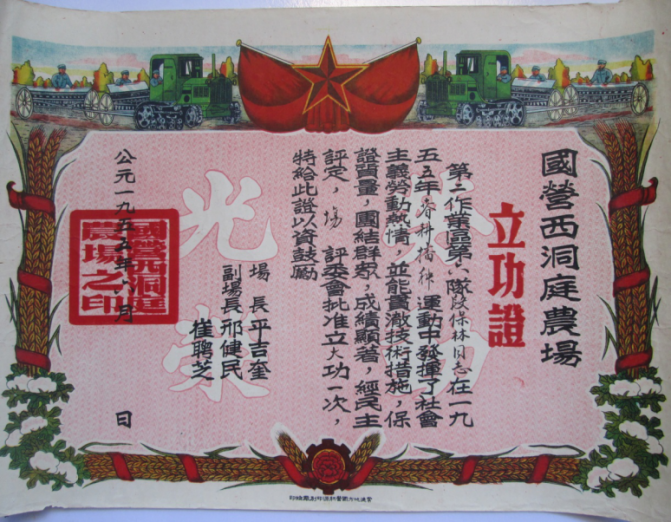 國營西洞庭農場
立功證
第二作業區第六隊段保林同志在一九
五五年春耕播種運動中發揮了社會
主義勞動熱情，並能貫澈技術措施，保
證質量，團結群衆，成績顯著，經民主
評定，場評委會批准立大功一次，
特給此證以資鼓勵
場長平吉奎
副場長邢健民
崔聘芝
公元一九五五年六月 日
國營西洞庭
農場之印
光榮